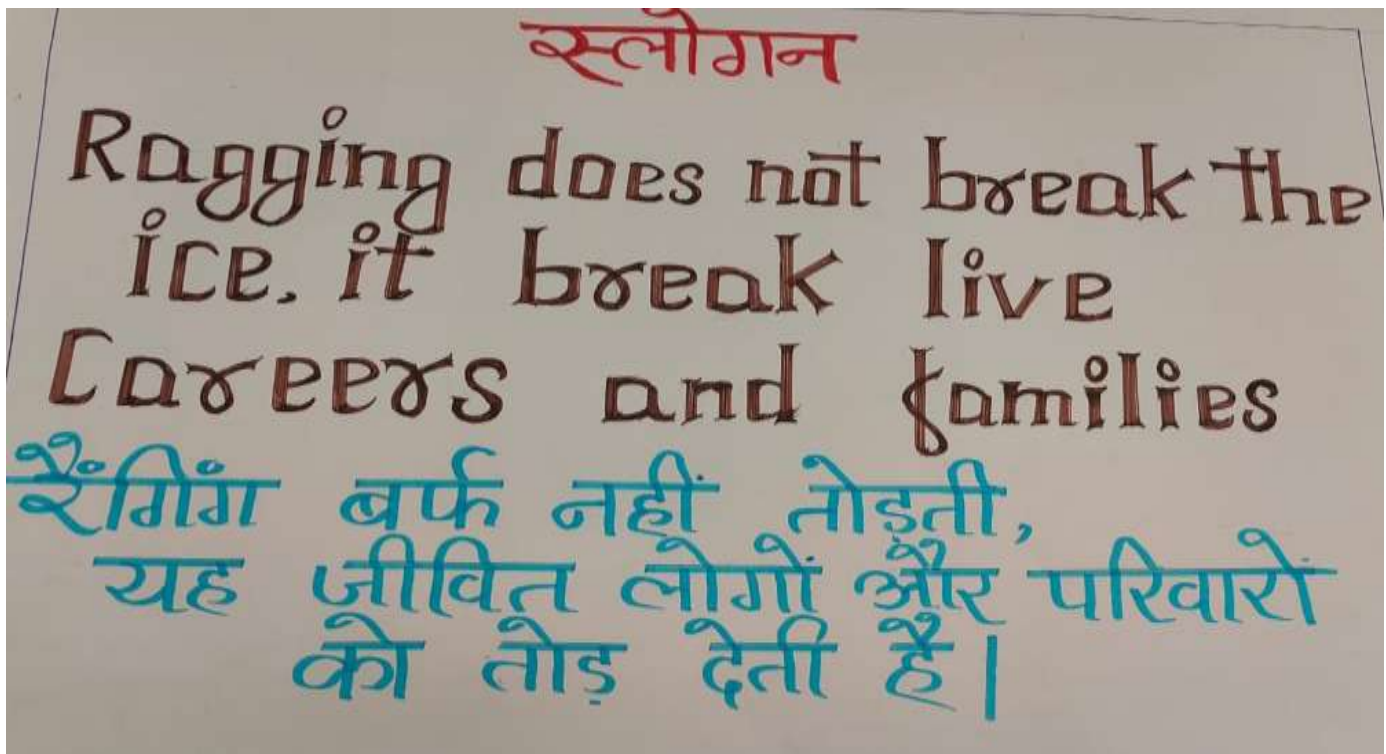 स्लोगन
Ragging does not break the
ice. it break live
Careers and families
रैंगिंग बर्फ नहीं तोड़ती,
यह जीवित लोगों और परिवारों
को तोड़ देती है|